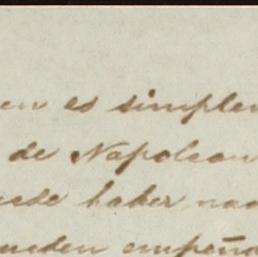 en es simplem
de Napoleon
uede haber na
ueden empeña